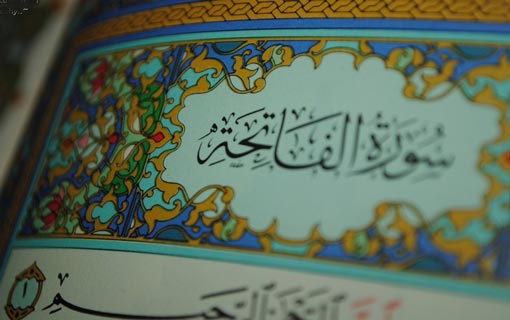 سُورَةُ الفَاتِحَةِ
الرَّحْمَنِ الرَّحِيمِ ١